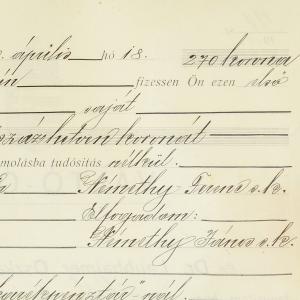 április hó 18. 270 korona
fizessen Ön ezen első
saját
százhetven koronát
molásba tudósitás nélkül.
Némethy Ferenc s.k.
Elfogadom:
Némethy János s.k.
takarékpénztár"-nál.